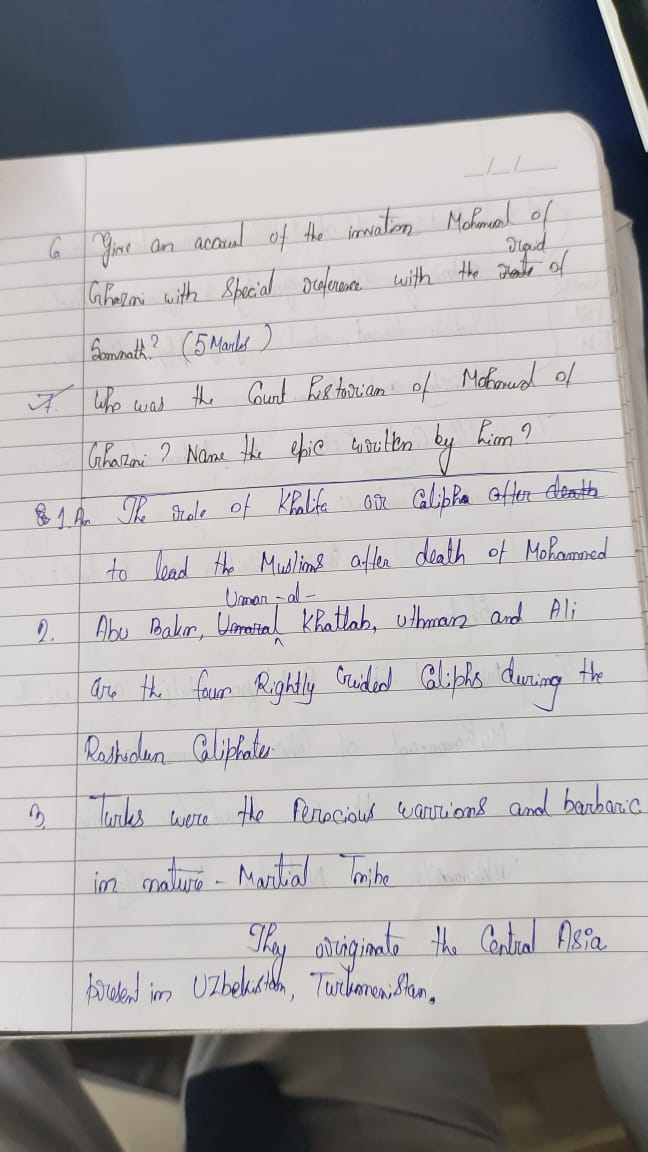 6 Give an accound of the invation Mohmad of
Ghazni with Special reference with the raid of
Somnath? (5 Marks)
7. Who was the Court historian of Mohmud of
Ghazni? Name the epic written by him?
1. An The role of Khalifa or Calipha after death
to lead the Muslims after death of Mohammed
2. Abu Bakr, Umar-al-Khatlab, uthman and Ali
are the four Rightly Guided Caliphs during the
Rashidun Caliphates.
3. Turks were the Ferocious warrions and barbaric
in nature - Martial Tribe
They originate the Central Asia
present in Uzbekistan, Turkmenistan.